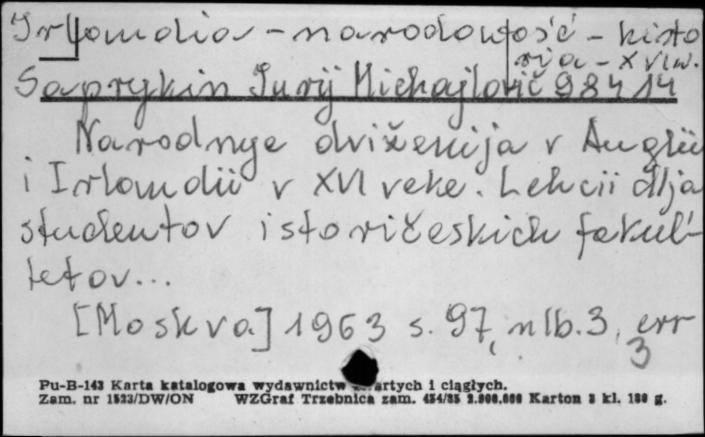 Irlandia - narodowość - histo
rija - XVI w.
Saprykin Jurij Michajlovič 98414
Narodnye dviženija v Anglii
i Irlandii v XVI veke. Lekcii dlja
studentov istoričeskich fakul'-
tetov...
[Moskva] 1963 s. 97, nlb. 3, err
3
Pu-B-143 Karta katalogowa wydawnictw artych i ciągłych.
Zam. nr 1523/DW/ON WZGraf Trzebnica zam. 454/85 2.000.000 Karton 3 kl. 180 g.